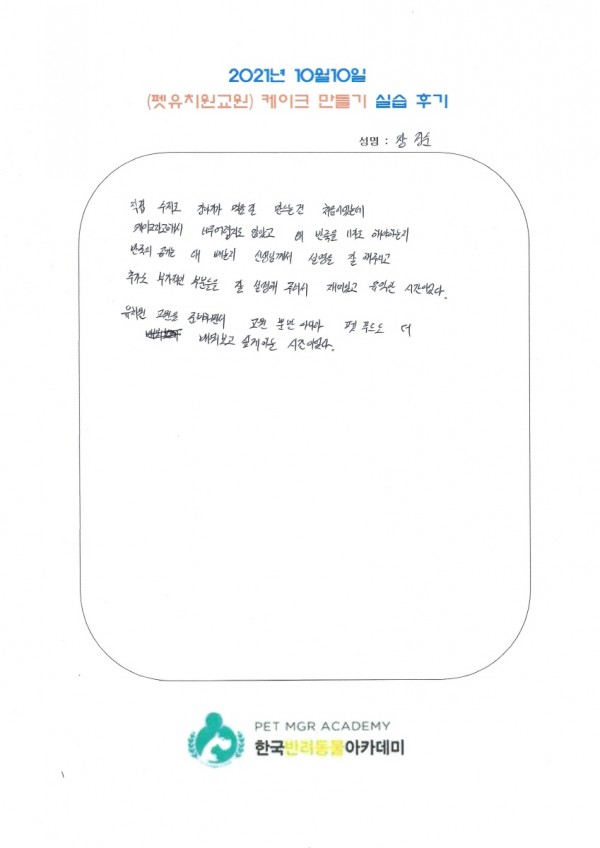 2021년 10월10일
(펫유치원교원) 케이크 만들기 실습 후기
성명 : 장
직접 수제로 강아지가 먹을걸 만드는건 처음이었는데
케이크라고해서 너무어렵지도 않았고 왜 반죽을 이정도 해야하는지
반죽의 공기는 왜 빼는지 선생님께서 설명을 잘 해주시고
추가로 부가적인 부분들을 잘 설명해 주셔서 재미있고 유익한 시간이었다.
유치원 교원을 준비하면서 교원 뿐만 아니라 펫 푸드도 더
배워보고 싶게하는 시간이었다.
PET MGR ACADEMY
한국반려동물아카데미